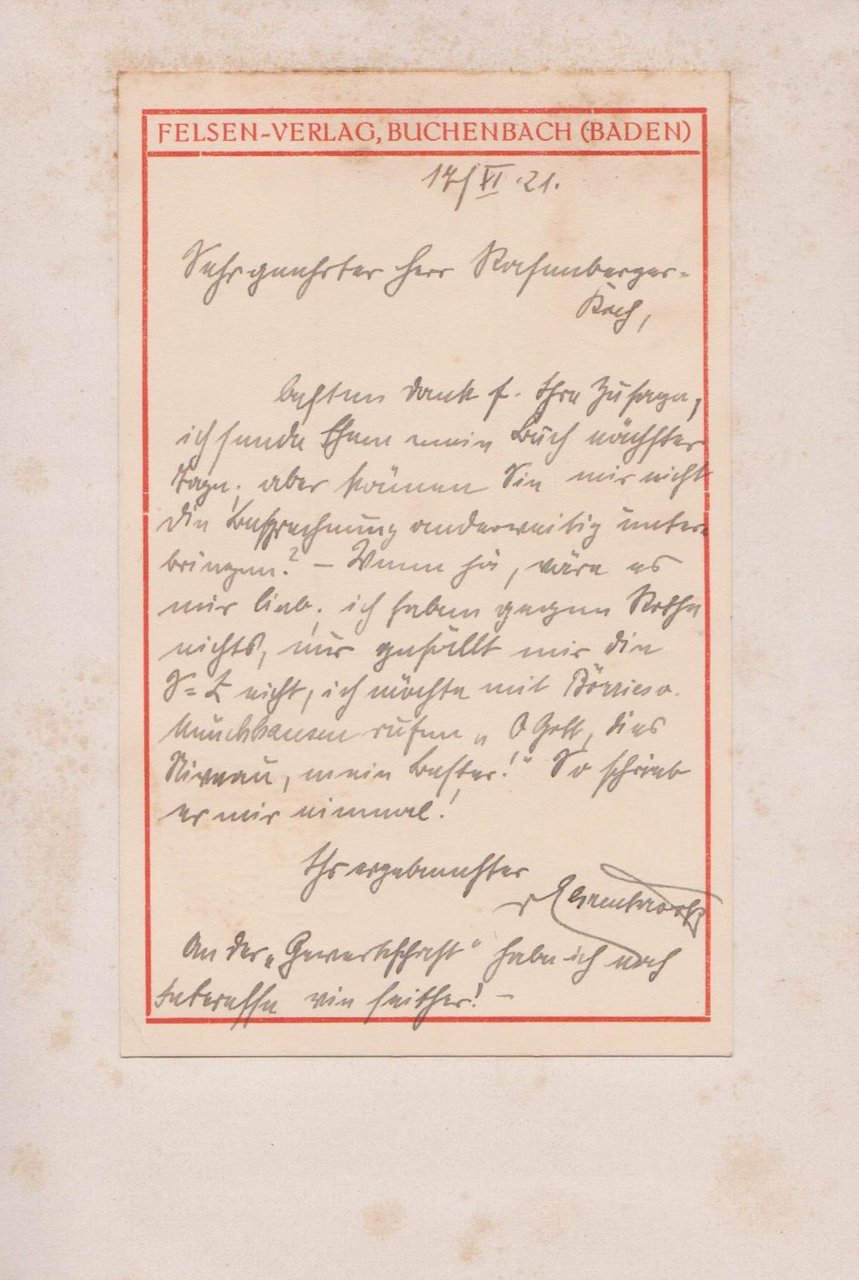 FELSEN-VERLAG, BUCHENBACH (BADEN)
17/VI.21.
Sehr geehrter Herr
Koch,
besten Dank f. Ihre Zusage,
ich sende Ihnen mein Buch nächster
Tage; aber können Sie mir nicht
die Besprechung anderweitig unter=
bringen? – Wenn ja, wäre es
mir lieb; ich habe gegen
nichts, nur gefällt mir die
nicht, ich möchte mit Börries v.
Münchhausen rufen „O Gott, dies
Niveau, mein Bester!" So schrieb
er mir einmal!
Ihr ergebenster
An der „Gewerkschaft" habe ich noch
Interesse wie seither! –